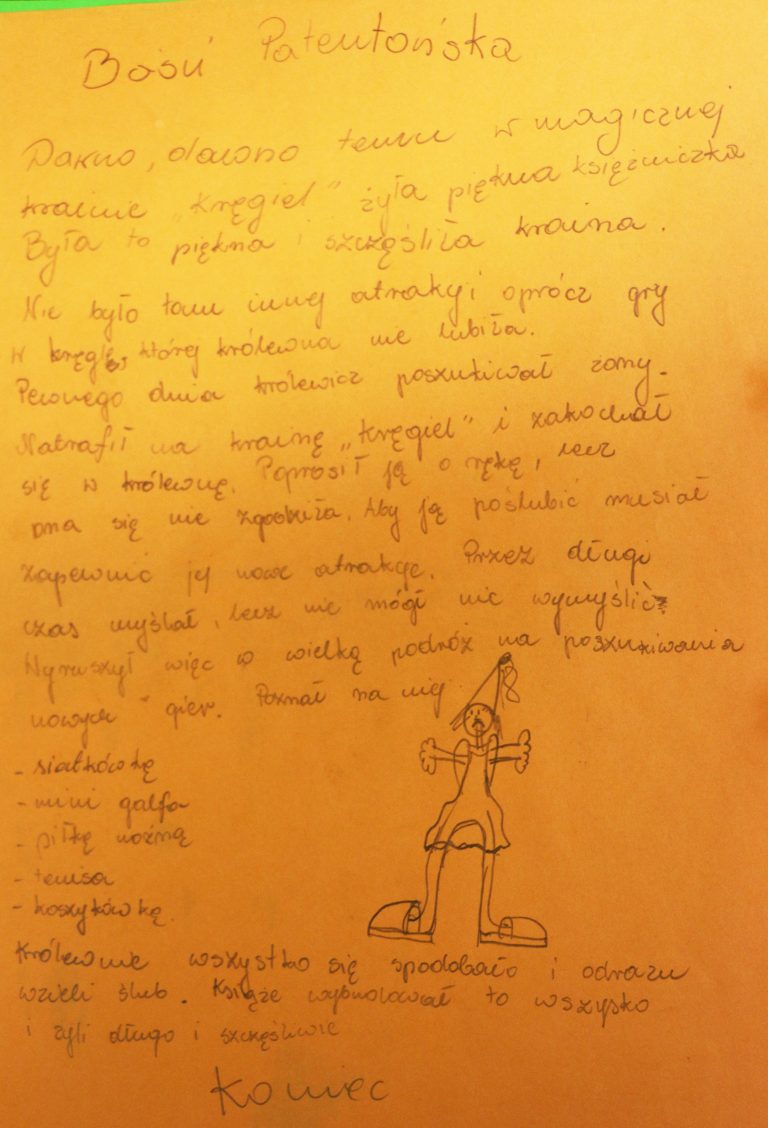 Baśń Patentońska
Dawno, dawno temu w magicznej
krainie „Kręgiel" żyła piękna księżniczka
Była to piękna i szczęśliła kraina.
Nie było tam innej atrakyji oprócz gry
w kręgle, której królewna nie lubiła.
Pewnego dnia królewicz poszukiwał żony.
Natrafił na krainę „Kręgiel" i zakochał
się w królewnę. Poprosił ją o rękę, lecz
ona się nie zgodziła. Aby ją poślubić musiał
zapewnić jej nowe atrakcje. Przez długi
czas myślał, lecz nie mógł nic wymyślić.
Wyruszył więc w wielką podróż na poszukiwania
nowych gier. Poznał na niej
- siatkówkę
- mini golfa
- piłkę nożną
- tenisa
- koszykówkę.
Królewnie wszystko się spodobało i odrazu
wzieli ślub. Książe wybudował to wszysko
i żyli długo i szczęśliwie
Koniec